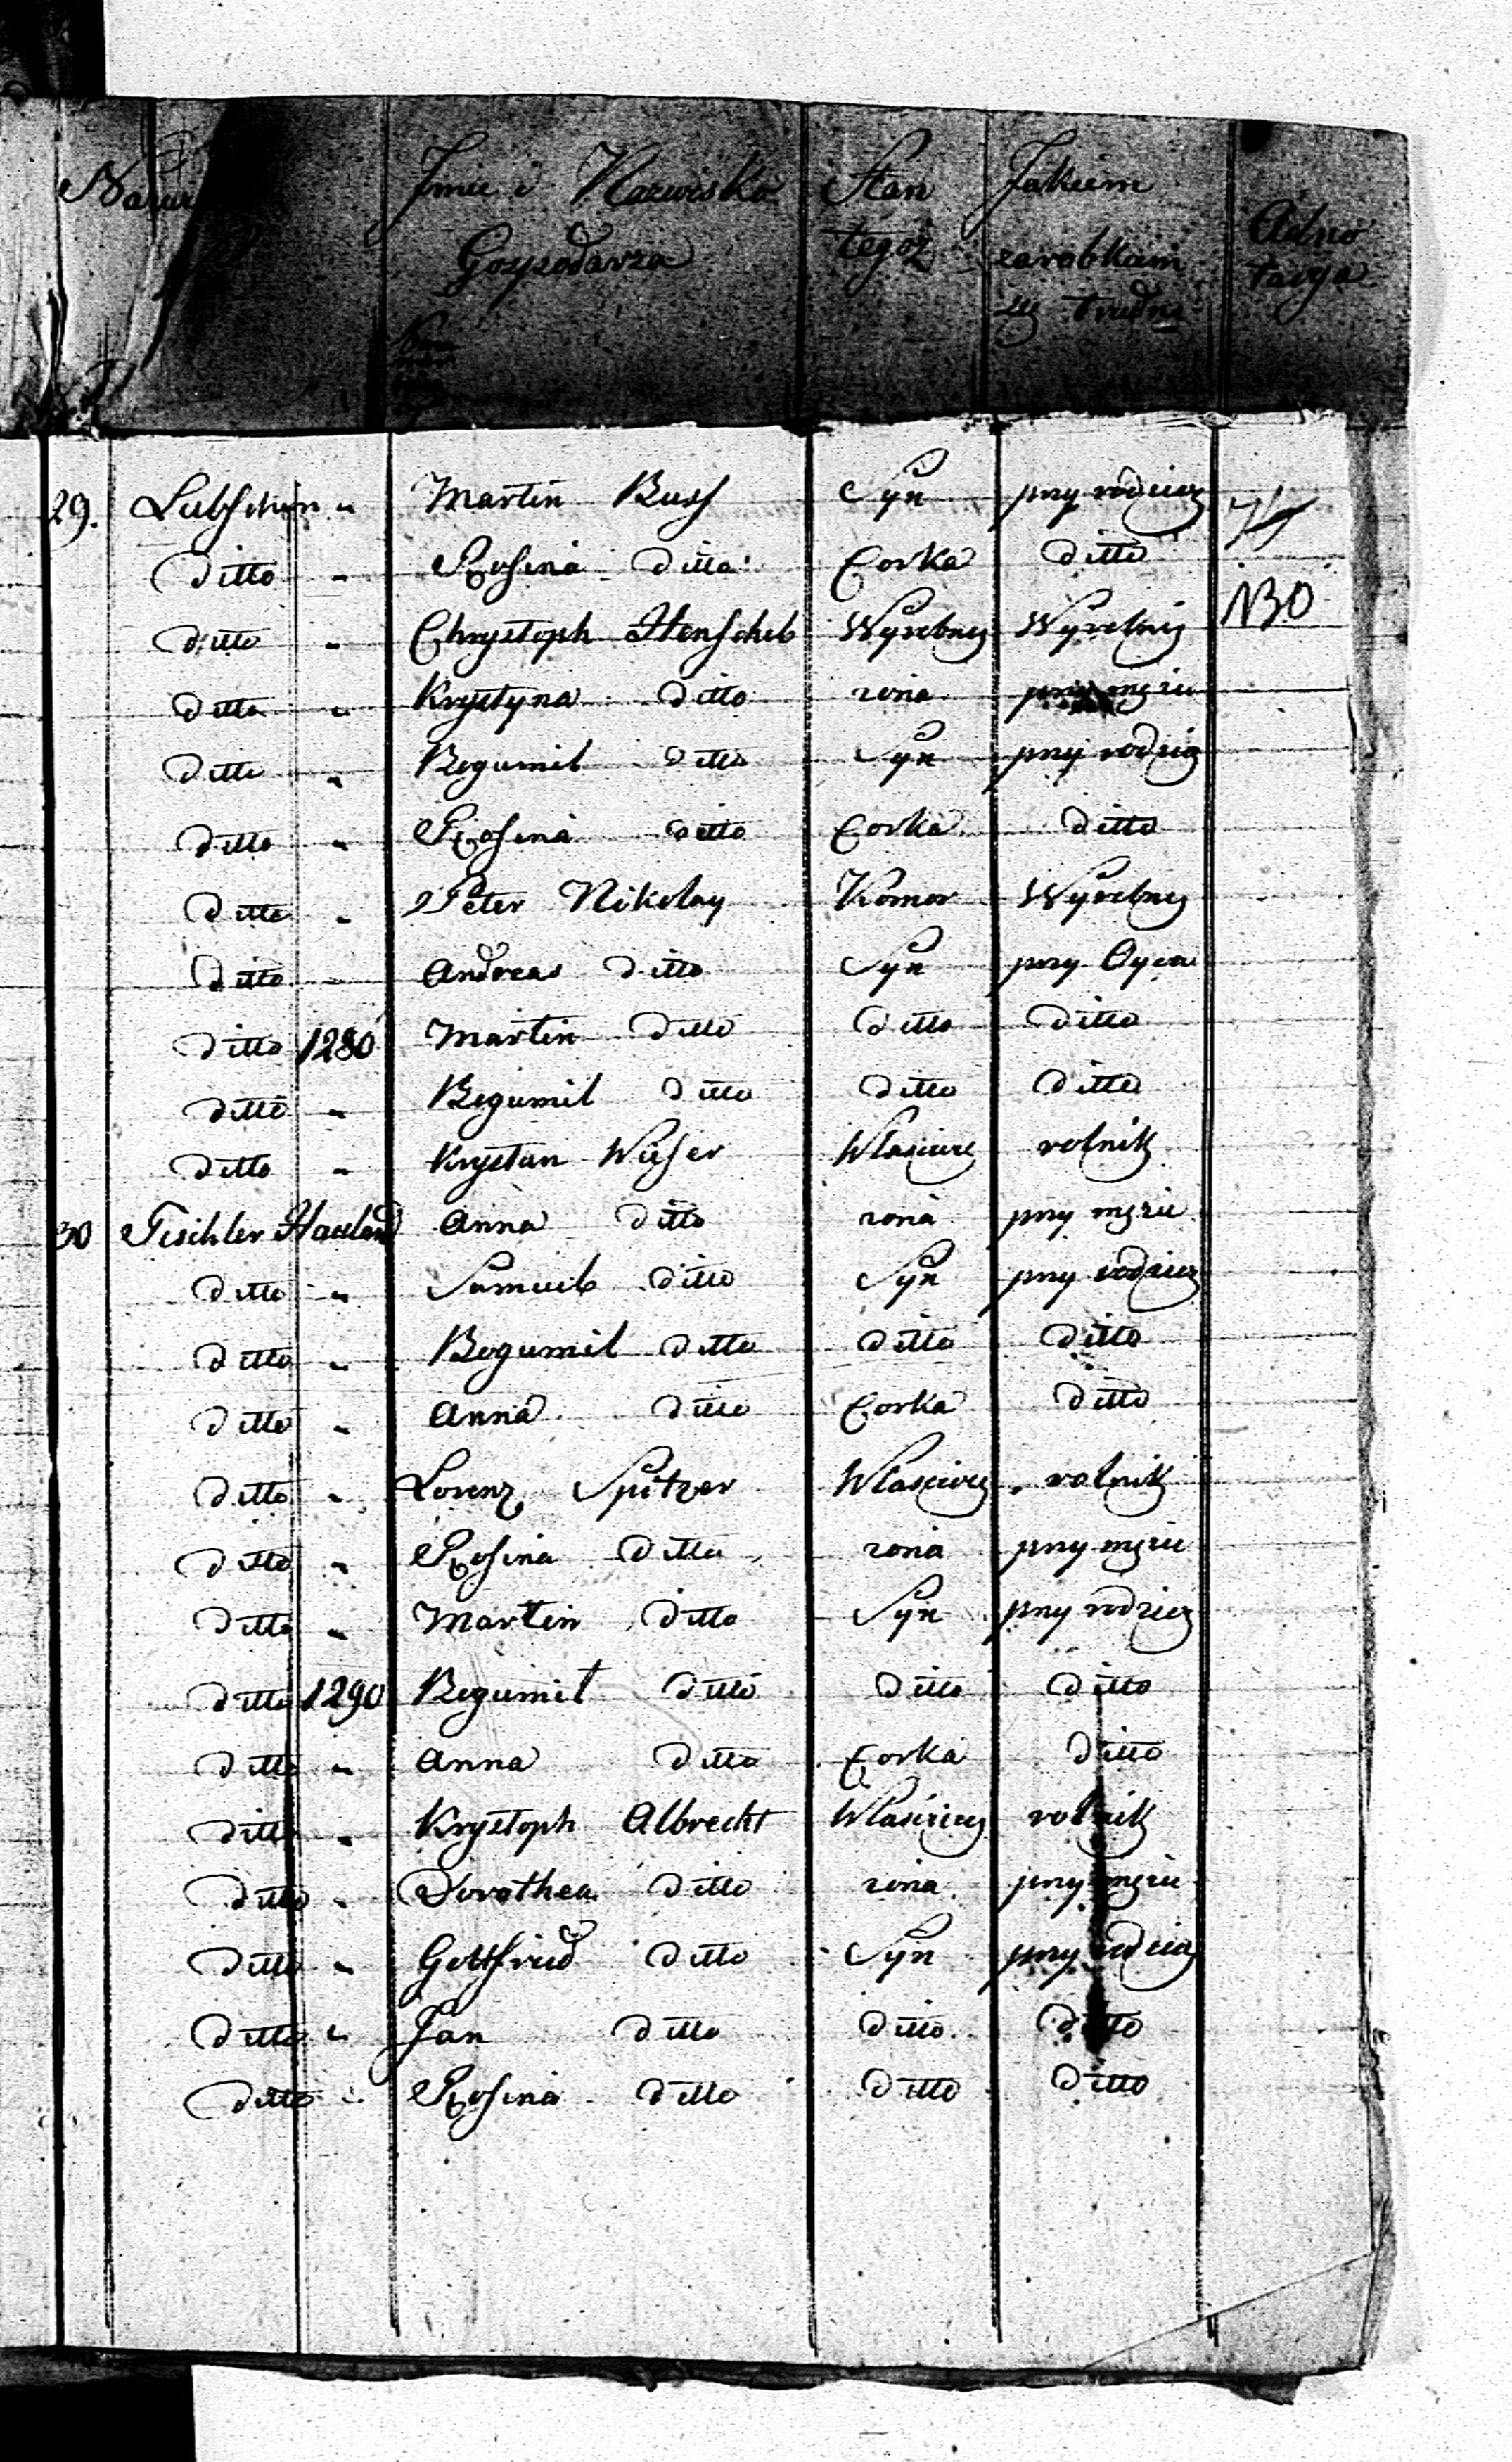 Imie i Nazwisko Gospodarza Stan tegoż Jakiem zarobkiem się trudni Adnotacya
29. Lubschin " Martin Buss Syn przy rodzicz
Ditto " Rosina Ditto Corka Ditto
Ditto " Chrystoph Henschel Wyrebny Wyrebny NBO
Ditto " Krystyna Ditto zona przy męzu
Ditto " Bogumil Ditto Syn przy rodzicz
Ditto " Rosina Ditto Corka Ditto
Ditto " Peter Nikolay Komor Wyrebny
Ditto " Andreas Ditto Syn przy Oyca
Ditto 1280 Martin Ditto Ditto Ditto
Ditto " Bogumil Ditto Ditto Ditto
Ditto " Krystan Wieser Wlascicie rolnik
30 Tischler Hauland Anna Ditto zona przy męzu
Ditto " Samuel Ditto Syn przy rodzicz
Ditto " Bogumil Ditto Ditto Ditto
Ditto " Anna Ditto Corka Ditto
Ditto " Lorenz Spitzer Wlasciciel rolnik
Ditto " Rosina Ditto zona przy męzu
Ditto " Martin Ditto Syn przy rodzicz
Ditto 1290 Bogumil Ditto Ditto Ditto
Ditto " Anna Ditto Corka Ditto
Ditto " Krystoph Albrecht Wlasciciel rolnik
Ditto " Dorothea Ditto zona przy męzu
Ditto " Gottfried Ditto Syn przy rodzicz
Ditto " Jan Ditto Ditto Ditto
Ditto " Rosina Ditto Ditto Ditto